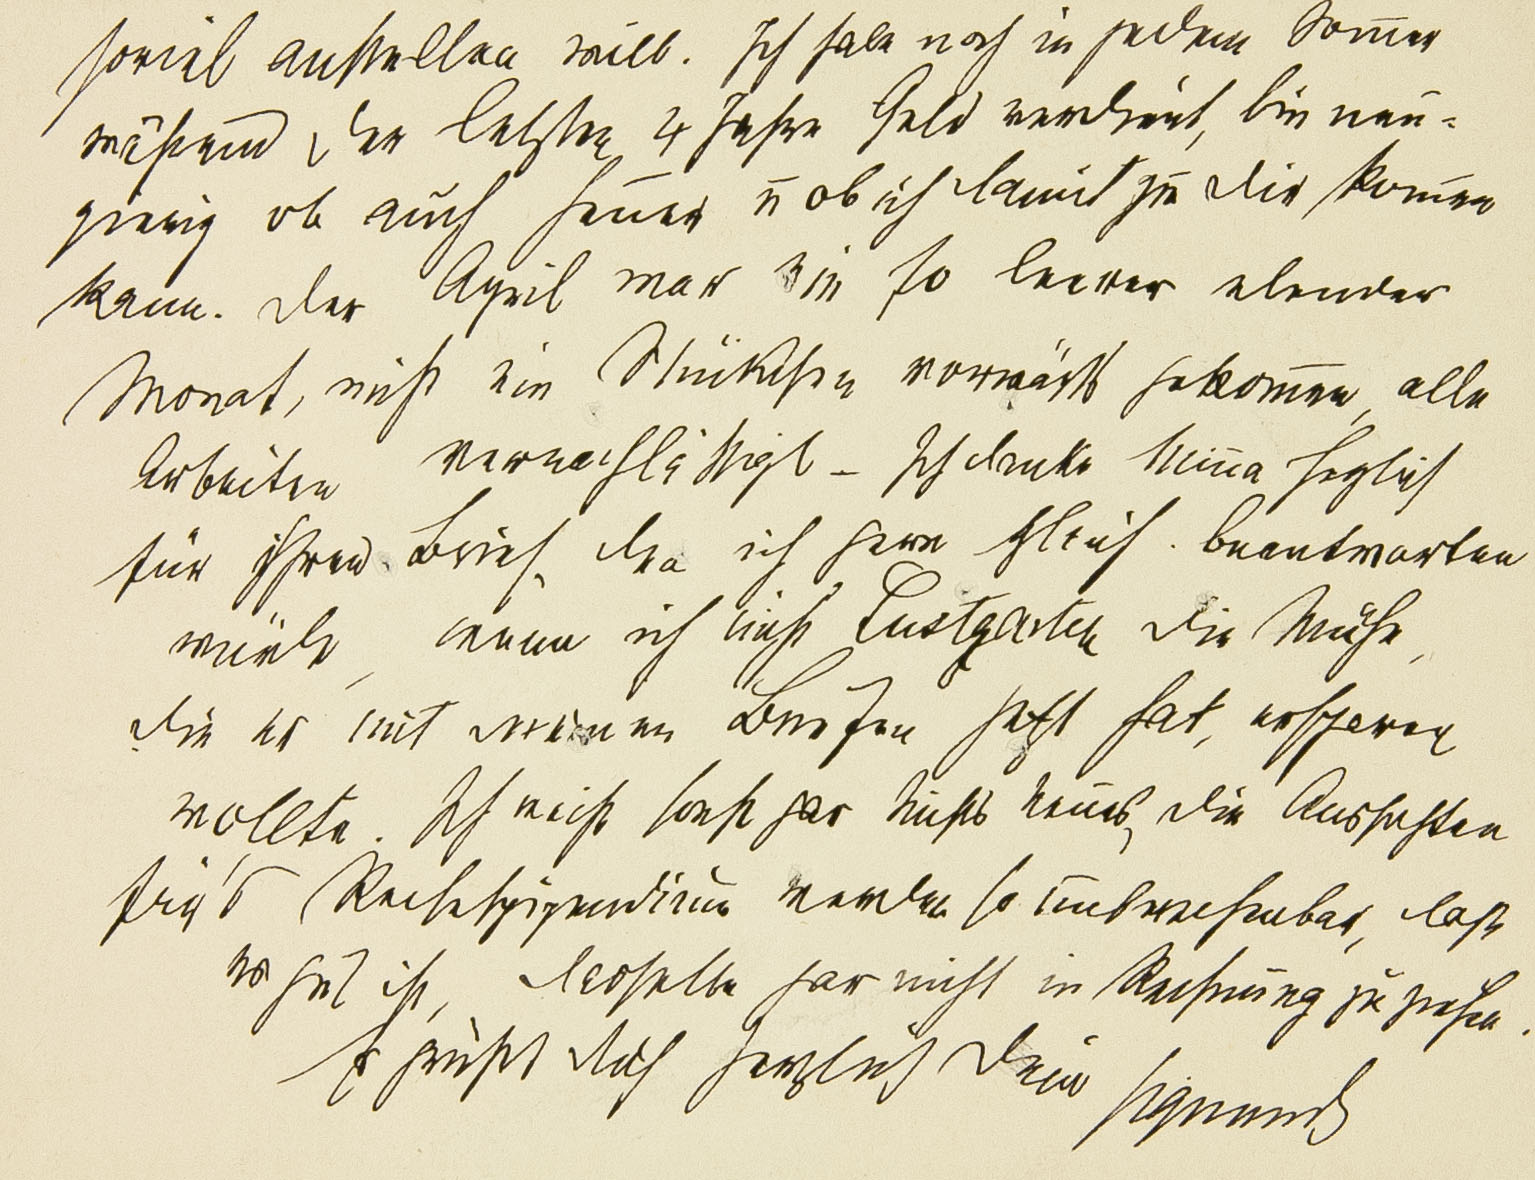 soviel anstellen will. Ich habe noch in jedem Som̅er
während der letzten 4 Jahre Geld verdient, bin neu-
gierig ob auch heuer u ob ich damit zu Dir kom̅en
kann. Der April war ein so leerer elender
Monat, nicht ein Stückchen vorwärts gekom̅en, alle
Arbeiten vernachlässigt – Ich danke Min̅a herzlich
für ihren Brief, den ich gern gleich beantworten
würde, wenn ich nicht Lustgarten die Mühe,
die er mit meinen Briefen jetzt hat, ersparen
wollte. Ich weiß sonst gar nichts neues, die Aussichten
für's Reisestipendium werden so unberechenbar, daß
es gut ist, dasselbe gar nicht in Rechnung zu ziehen.
Es grüßt dich herzlich Dein Sigmund